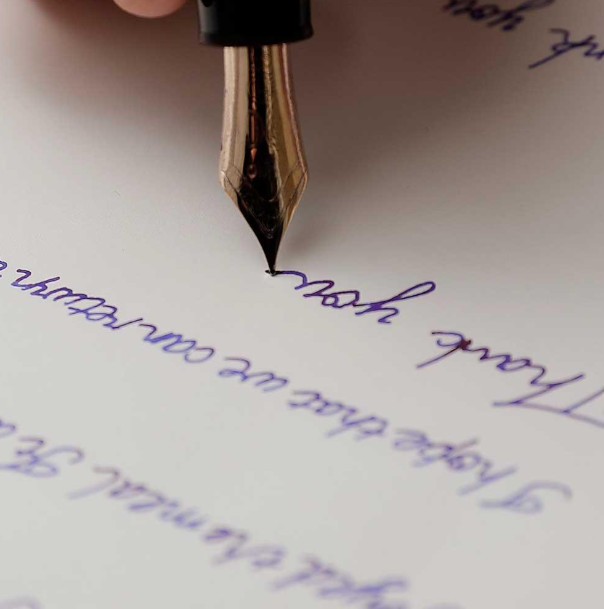 the meal It
I hope that we can return
Thank you
you